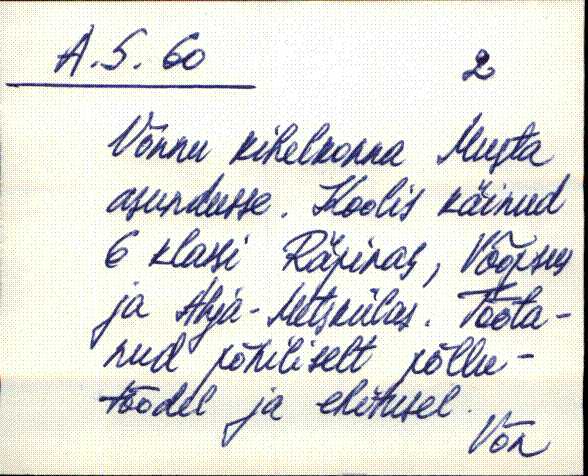 A.S. 60
2
Võnnu kihelkonna Musta
asundusse. Koolis käinud
6 klassi Räpinas, Võõpsus
ja Ahja-Metskülas. Tööta-
nud põhiliselt põllu-
töödel ja ehitusel.
Võn